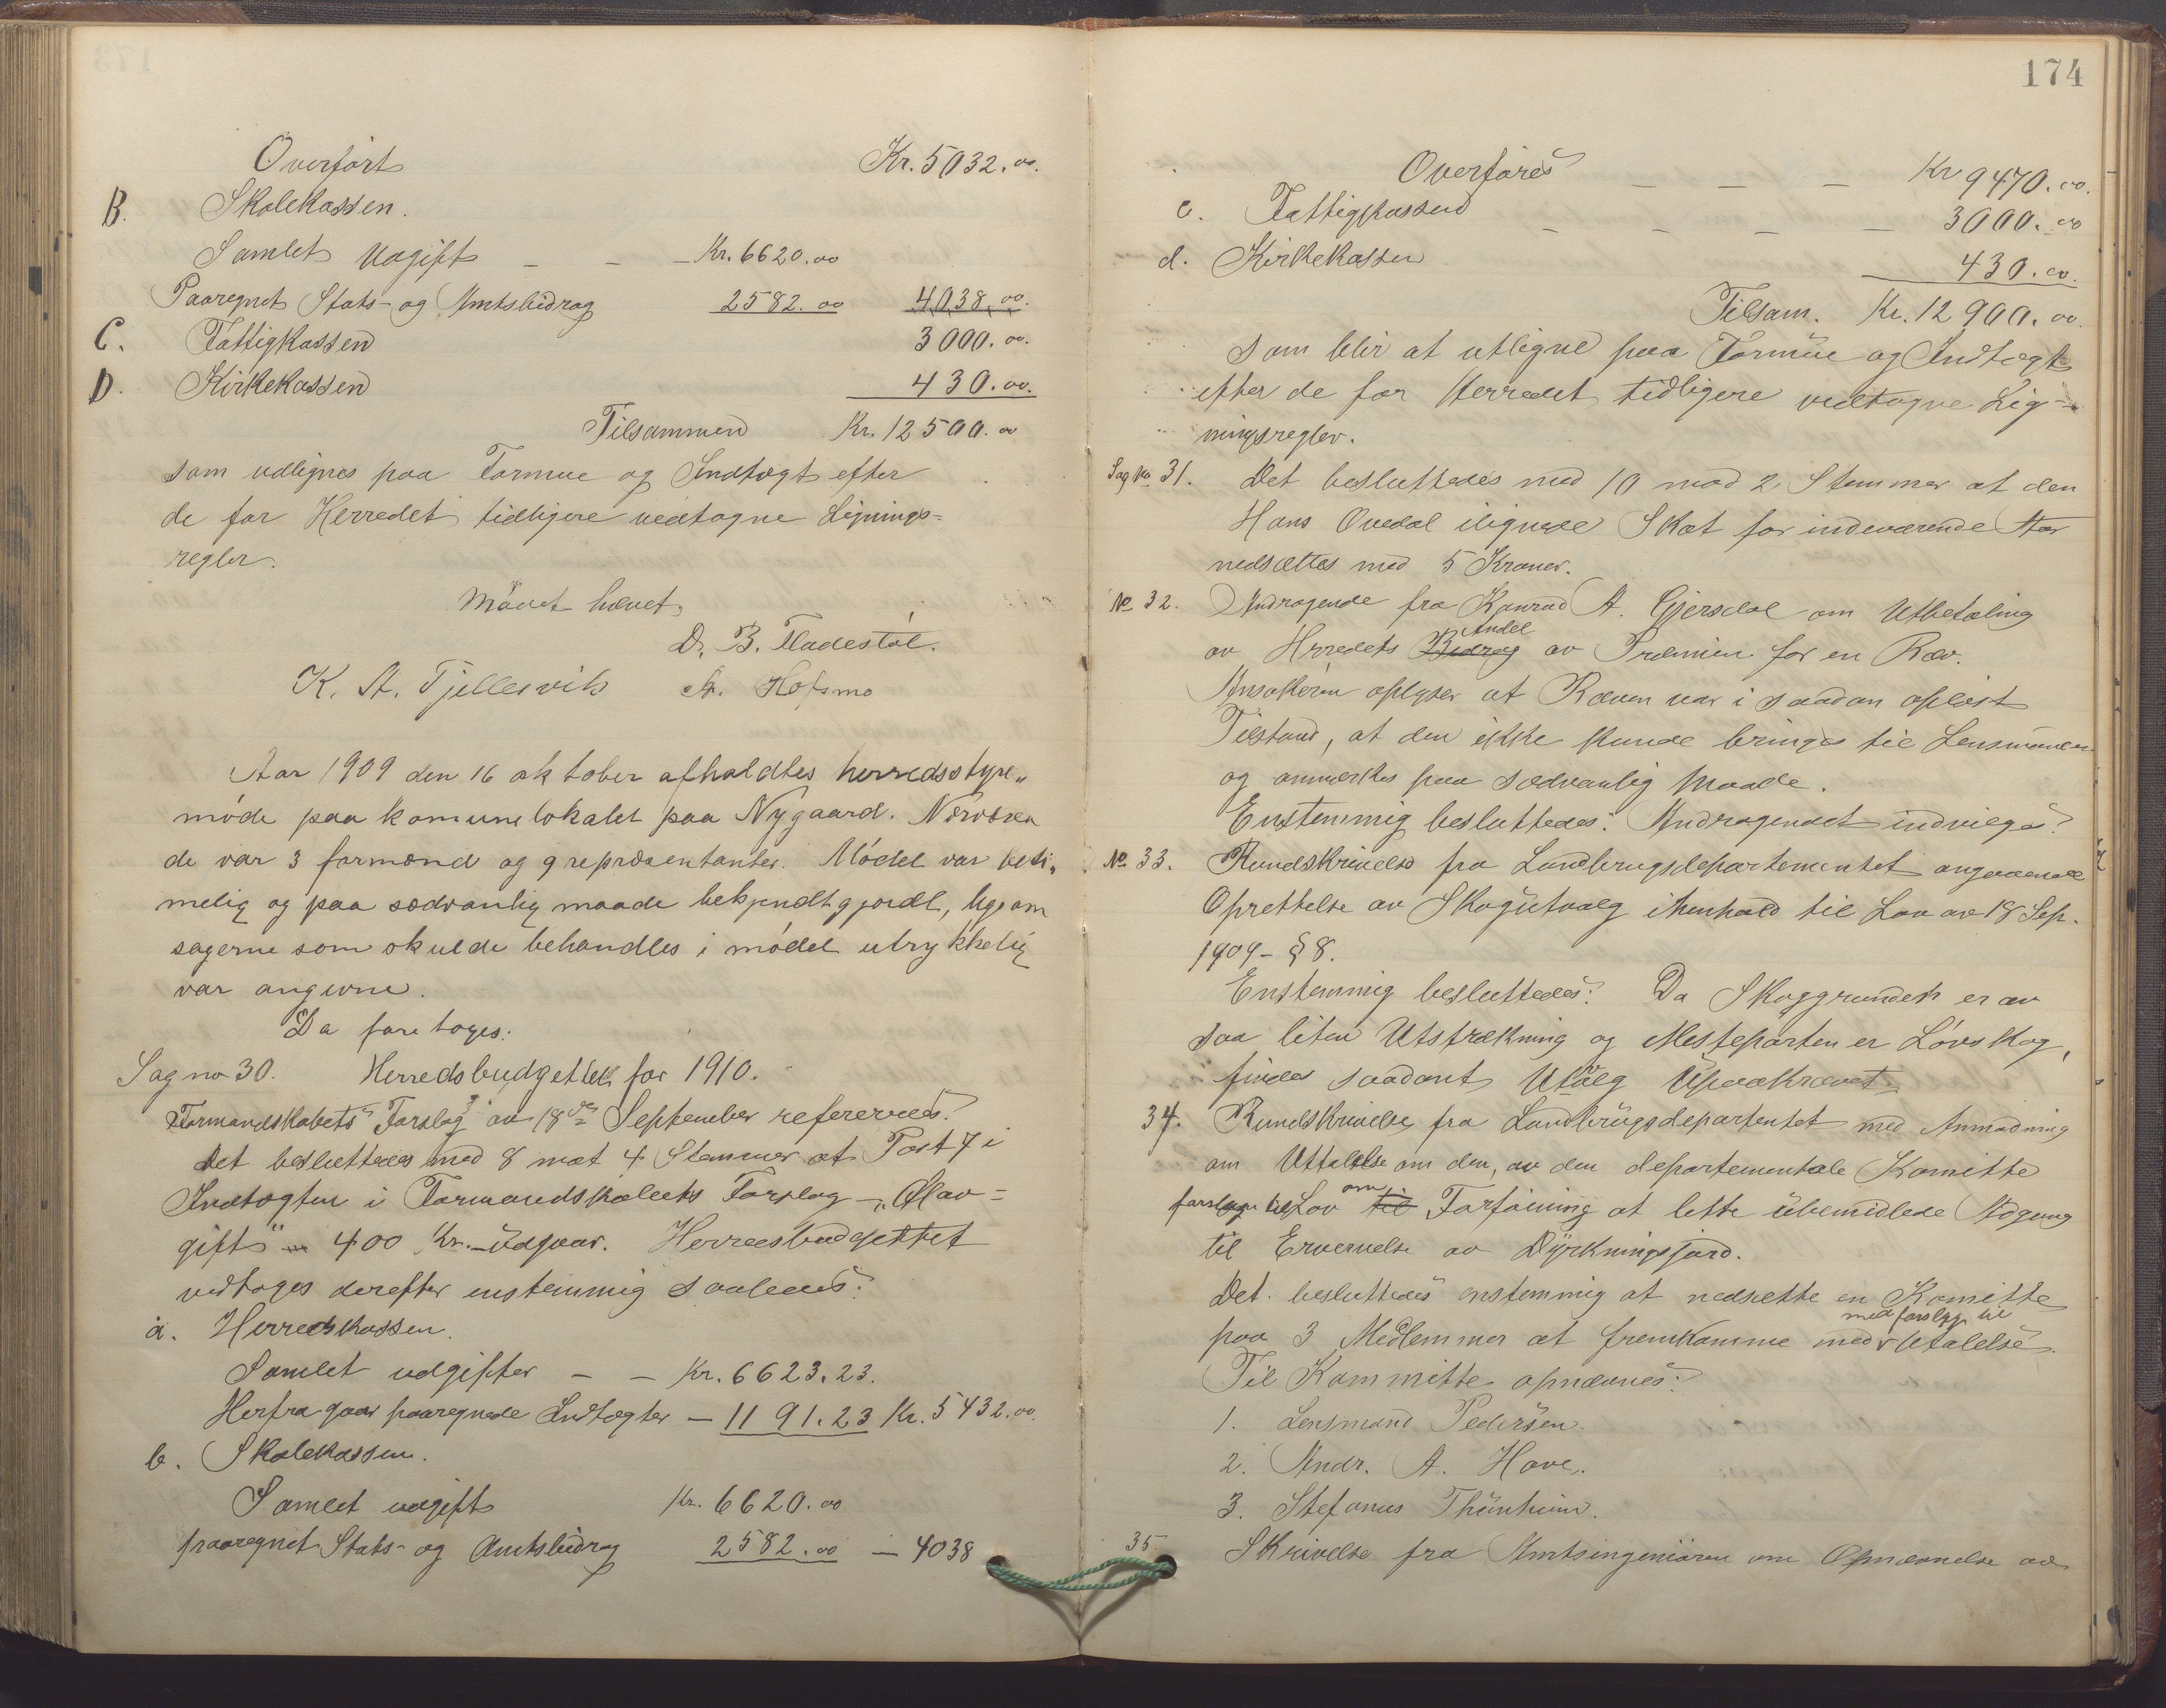 Overført Kr. 5032.00.
B. Skolekassen.
Samlet Udgift - - - Kr. 6620.00
Paaregnet Stats- og Amtsbidrag 2582.00 4038.00.
C. Fattigkassen 3000.00.
D. Kirkekassen 430.00.
Tilsammen Kr. 12500.00
som udlignes paa Formue og Indtægt efter
de for Herredet tidligere vedtagne Lignings-
regler.
Mödet hævet.
D. B. Fladestöl.
K. A. Tjellesvik A. Hofsmo
Aar 1909 den 16 oktober afholdtes herredsstyre„
møde paa komunelokalet paa Nygaard. Nærværen
de var 3 formænd og 9 repræsentanter. Mødet var beti„
melig og paa sædvanlig maade bekjendtgjordt, ligesom
sagerne som skulde behandles i mødet utrykkelig
var angivne.
Da foretoges:
Sag no 30. Herredsbudgettet for 1910.
Formandskabets Forslag av 18de September refereredes.
Det besluttedes med 8 mot 4 Stemmer at Post 7 i
Indtægten i Formandskabets Forslag - „Ølav=
gift" - 400 Kr. - udgaar. Herredsbudgettet
vedtoges derefter enstemmig saaledes:
a. Herredskassen.
Samlet udgifter - - Kr. 6623.23.
Herfra gaar paaregnede Indtægter - 1191.23 Kr. 5432.00.
b. Skolekassen.
Samlet udgift Kr. 6620.00
paaregnet Stats- og Amtsbidrag 2582.00 - 4038
174
Overføres - - - Kr 9470.00.
c. Fattigkassen - - - - 3000.00
d. Kirkekassen 430.00.
Tilsam. Kr. 12900.00.
som blir at utligne paa Formue og Indtægt
efter de for Herredet tidligere vedtagne Lig-
ningsregler.
Sag No 31. Det besluttedes med 10 mod 2 Stemmer at den
Hans Ovedal ilignede Skat for indeværende Aar
nedsættes med 5 Kroner.
No 32. Andragende fra Konrad A. Gjersdal om Utbetaling
av Herredets Bidrag Andel av Præmien for en Ræv.
Ansøkeren oplyser at Ræven var i saadan opløst
Tilstand, at den ikke kunde bringes til Lensmanden
og anmerkes paa sædvanlig Maade.
Enstemmig besluttedes: Andragendet indvilges.
No 33. Rundskrivelse fra Landbrugsdepartementet angaaende
Oprettelse av Skogutvalg i henhold til Lov av 18 Sep.
1909 - § 8.
Enstemmig besluttedes: Da Skoggrunden er av
saa liten Utstrækning og Mesteparten er Løvskog,
findes saadant Utvalg Upaakrævet.
34. Rundskrivelse fra Landbrugsdepartentet med Anmodning
om Uttalelse om den, av den departementale Komitte
forslage til Lov til om Forføining at lette ubemidlede Adgang
til Ervervelse av Dyrkningsjord.
Det besluttedes enstemmig at nedsætte en Komitte
paa 3 Medlemmer at fremkomme med med forslag til Utalelse.
Til Kommitte opnævnes:
1. Lensmand Pedersen.
2. Andr. A. Hove.
3. Stefanus Thunheim.
35 Skrivelse fra Amtsingeniøren om Opnævnelse av